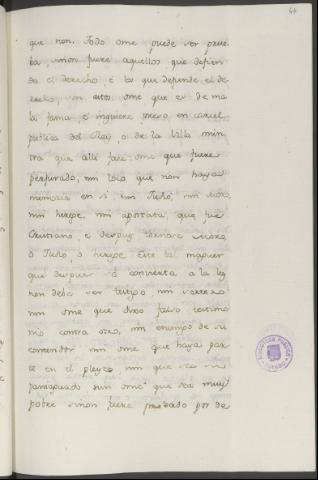 44
que non. Todo ome puede ser prue
ba, sinon fuere aquellos que defien
de el derecho, e los que defiende el de
recho, son estos, ome que es de ma
la fama, e ome que yace preso en carcel
publica del Rey, o de la Villa mien
tra que alli fare ome que fuere
perjurado, nin loco que non haya
memoria en si, nin Judio, nin Moro,
nin herege, nin apostata, que fue
Christiano, e despues tornose Moro,
o Judio, o herege. Este tal maguer
que despues se convierta a la ley
non debe ser testigo, nin
nin ome que dixo falso testimo
nio contra otro, nin enemigo de su
contendor nin ome que haya par
te en el pleyto, nin que sea su
paniaguado nin ome que sea muy
pobre sinon fuere probado por de